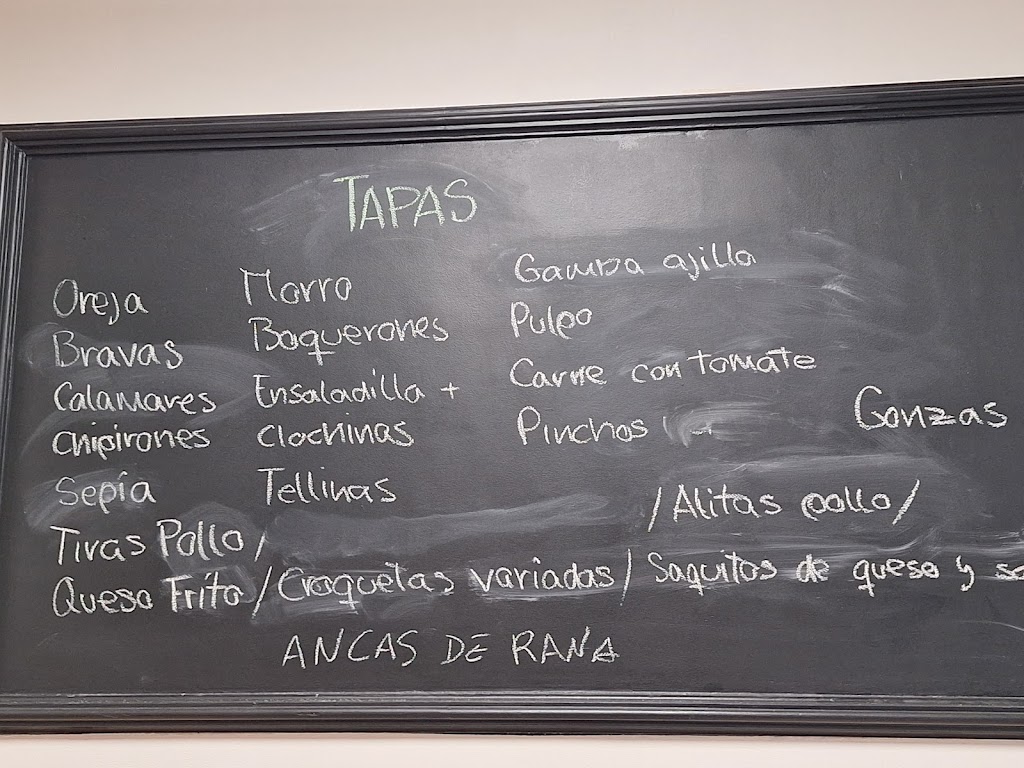 TAPAS
Oreja
Bravas
Calamares
Chipirones
Sepía
Tiras Pollo /
Queso Frito / Croquetas variadas / Saquitos de queso y
Morro
Boquerones
Ensaladilla +
Clochinas
Tellinas
Gamba ajillo
Pulpo
Carne con tomate
Pinchos
Gonzas
/ Alitas pollo /
ANCAS DE RANA